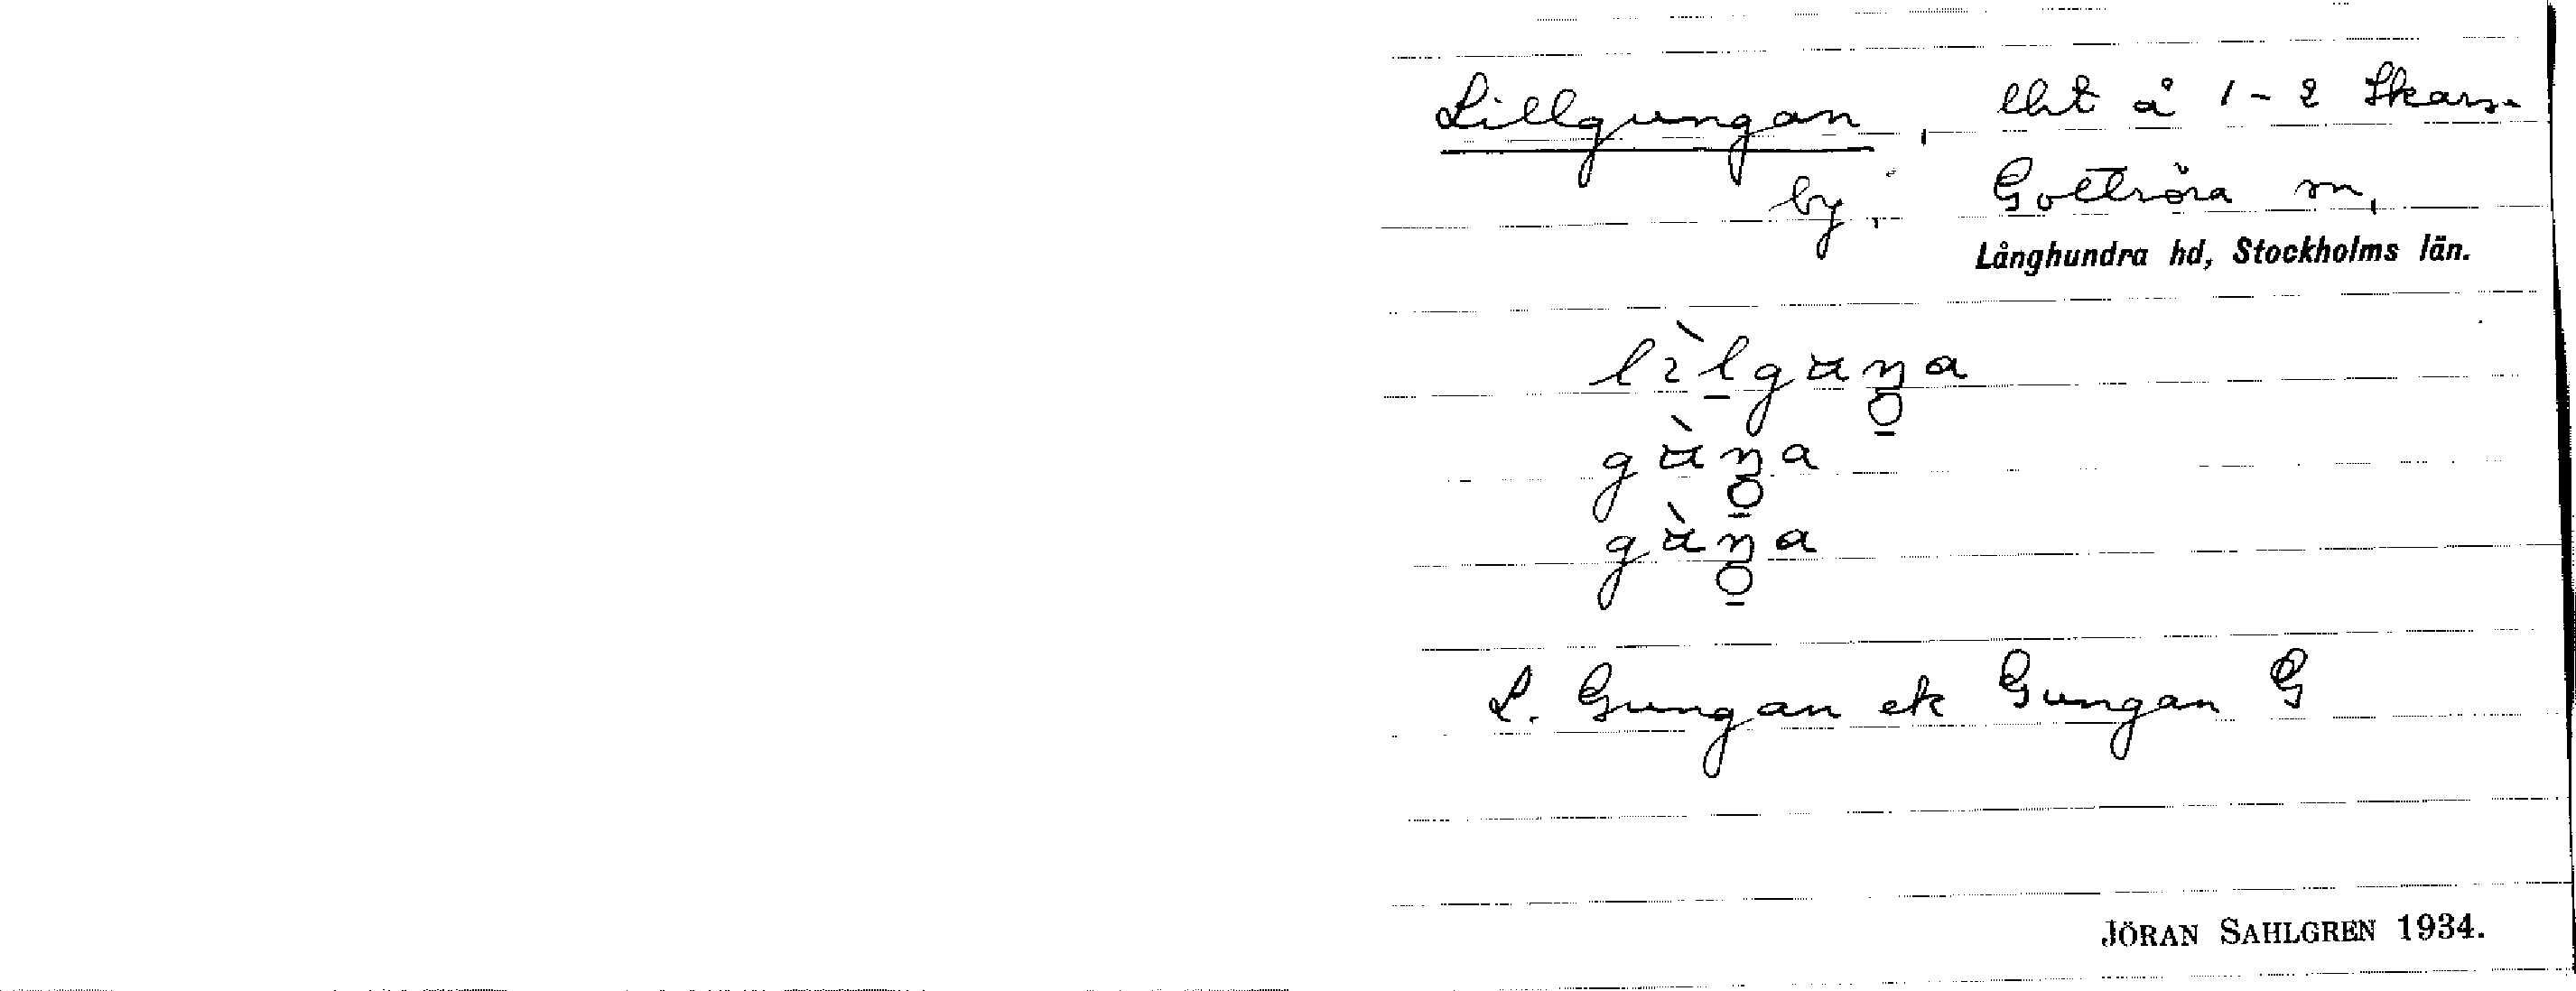 Lillgungan, lht å 1-2 Skarsa
by, Gottröra sn,
Långhundra hd, Stockholms län.
lìlgɯŋa
gɯ̀ŋa
gɯ̀ŋa
L. Gungan ek Gungan G
JÖRAN SAHLGREN 1934.